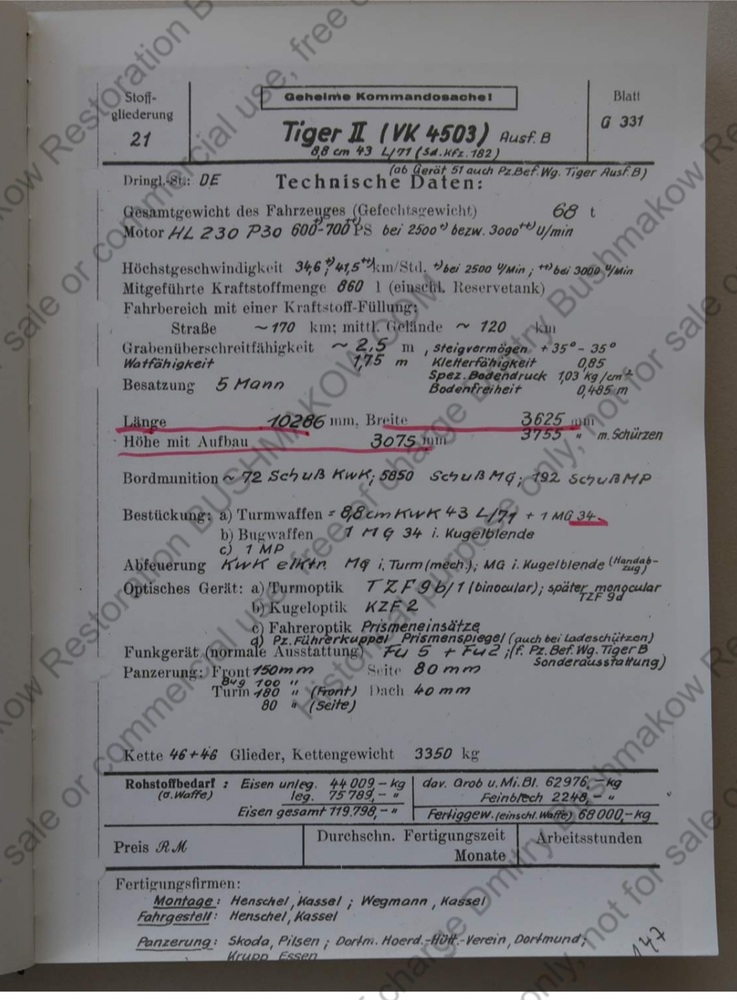 Stoff-
gliederung
21
Geheime Kommandosache!
Blatt
G 331
Tiger II (VK 4503) Ausf. B
8,8 cm 43 L/71 (Sd. Kfz. 182)
(ab Gerät 51 auch Pz. Bef. Wg. Tiger Ausf. B)
Dringl.-St.: DE Technische Daten:
Gesamtgewicht des Fahrzeuges (Gefechtsgewicht) 68 t
Motor HL 230 P30 600+)-700++)PS bei 2500+) bezw. 3000++)U/min
Höchstgeschwindigkeit 34,6+); 41,5++)km/Std. +)bei 2500 U/Min ; ++)bei 3000 U/Min
Mitgeführte Kraftstoffmenge 860 l (einschl. Reservetank)
Fahrbereich mit einer Kraftstoff-Füllung:
Straße ~170 km; mittl. Gelände ~ 120 km
Grabenüberschreitfähigkeit ~ 2,5 m , Steigvermögen + 35° - 35°
Watfähigkeit 1,75 m Kletterfähigkeit 0,85
Spez. Bodendruck 1,03 kg/cm²
Besatzung 5 Mann Bodenfreiheit 0,485 m
Länge 10286 mm, Breite 3625 mm
Höhe mit Aufbau 3075 mm 3755 " m. Schürzen
Bordmunition ~ 72 Schuß KwK; 5850 Schuß MG; 192 Schuß MP
Bestückung: a) Turmwaffen = 8,8 cm KwK 43 L/71 + 1 MG 34
b) Bugwaffen 1 MG 34 i. Kugelblende
c) 1 MP
Abfeuerung KwK elktr. MG i. Turm (mech.); MG i. Kugelblende (Handab-
zug)
Optisches Gerät: a) Turmoptik TZF 9b/1 (binocular); später monocular
TZF 9d
b) Kugeloptik KZF 2
c) Fahreroptik Prismeneinsätze
d) Pz. Führerkuppel Prismenspiegel (auch bei Ladeschützen)
Funkgerät (normale Ausstattung) Fu 5 + Fu 2 ; (f. Pz. Bef. Wg. Tiger B
Sonderausstattung)
Panzerung: Front 150 mm Seite 80 mm
Bug 100 "
Turm 180 " (Front) Dach 40 mm
80 " (Seite)
Kette 46+46 Glieder, Kettengewicht 3350 kg
Rohstoffbedarf : Eisen unleg. 44 009,- kg dav. Grob u. Mi. Bl. 62976,- kg
(o. Waffe) leg. 75 789,- " Feinblech 2248,- "
Eisen gesamt 119.798,- " Fertiggew. (einschl. Waffe) 68 000,- kg
Preis RM
Durchschn. Fertigungszeit
Monate
Arbeitsstunden
Fertigungsfirmen:
Montage: Henschel, Kassel ; Wegmann, Kassel
Fahrgestell: Henschel, Kassel
Panzerung: Skoda, Pilsen ; Dortm. Hoerd.-Hütt.-Verein, Dortmund;
Krupp Essen
147